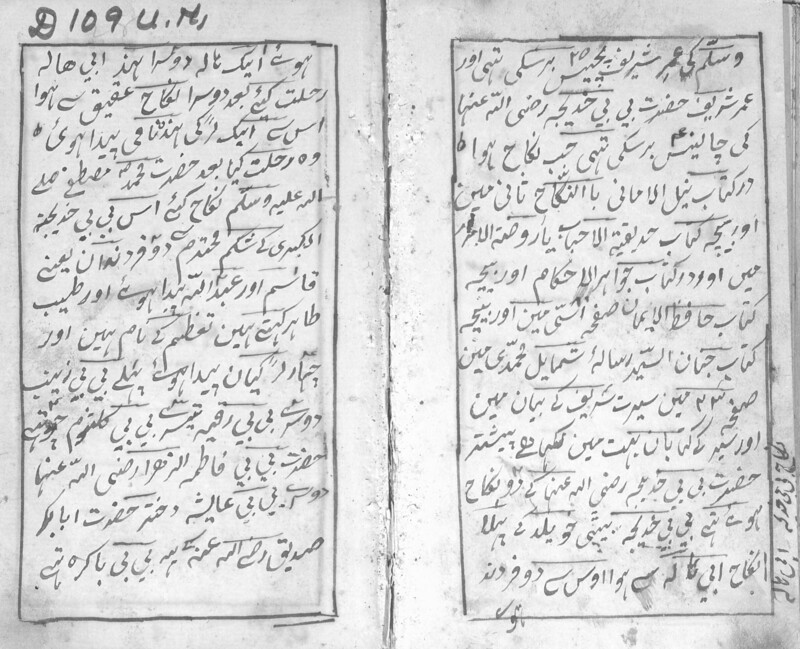 D 109 U.H,
وسلّم کی عمر شریف پچیس ۲۵ برسکی تہی اور
عمر شریف حضرت بی بی خدیجہ رضی اللہ عنہا
کی چالیس ۴۰ برسکی تہی جب نکاح ہوا
در کتاب نیل الامانی باالنکاح ثانی مین
اور بیچہ کتاب حدیقتہ الاحباب یا روضتہ
مین اور در کتاب جواہر الاحکام اور بیچہ
کتاب حافظ الایمان صفحہ اسّی مین اور بیچہ
کتاب جنان السیر رسالہ شمایل محمّدی مین
صفحہ مین سیرت شریف کے بیان مین
اور سیر کے کتابان بہت مین لکھا ہے پیشتر
حضرت بی بی خدیجہ رضی اللہ عنہا کے دو نکاح
ہوے تہے بی بی خدیجہ بیٹی خویلد کے پہلا
نکاح ابی ہالہ سے ہوا اوس سے دو فرزند
ہوے
نکاح بی بی خدیجہ ابی ہالہ
ہوے ایک ہالہ دوسرا ہند ابی ہالہ
رحلت کیئے بعد دوسرا نکاح عقیق سے ہوا
اس سے ایک لڑکی ہند نامی پیدا ہوئ
وہ رحلت کیا بعد حضرت محمد مصطفےٰ صلے
اللہ علیہ وسلم نکاح کئے اس بی بی خدیجتہ
الکبریٰ کے شکم محترم دو فرزندان یعنے
قاسم اور عبد اللہ پیدا ہوے اور طیب
طاہر کہتے ہین تعظیم کے نام ہین اور
چہار لڑکیان پیدا ہوے پہلے بی بی زینب
دوسرے بی بی رقیہ تیسرے بی بی کلثوم چوتہے
حضرت بی بی فاطمہ الزہرا رضی اللہ عنہا
دوسرے بی بی عایشہ دختر حضرت ابابکر
صدیق رضے اللہ عنہ کے یہ بی بی باکرہ تہے